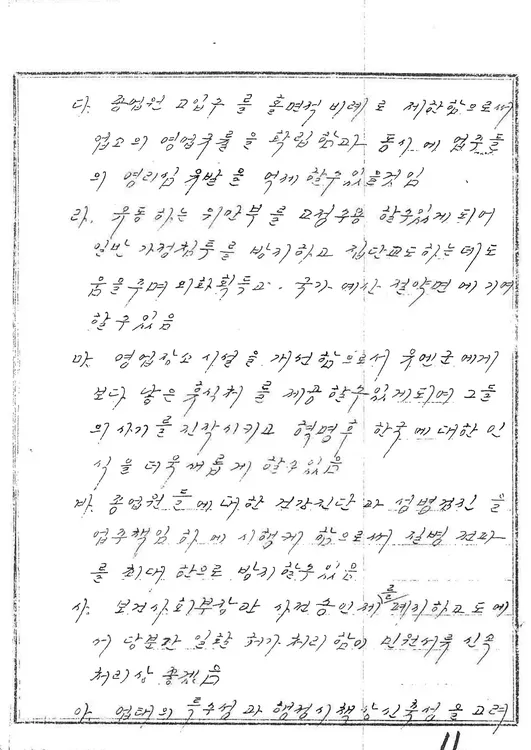 다. 종업원 고입수를 홀면적 비례로 제한함으로써
업소의 영업규률을 확립함과 동시에 업주들
의 영리심 유발을 억제할수있을것임
라. 유동하는 위안부를 고정수용 할수있게 되여
일반 가정침투를 방지하고 집단교도하는데도
움을주며 외화획득고. 국가 예산 절약면에 기여
할수있음
마. 영업장소 시설을 개선함으로서 유엔군에게
보다 낳은 휴식처를 제공할수있게되여 그들
의 사기를 진작시키고 혁명후 한국에 대한 인
식을 더욱 새롭게 할수있음
바. 종업원들에대한 건강진단과 성병검진을
업주책임하에 시행케 함으로써 질병 전파
를 최대한으로 방지할수있음
사. 보건사회부장관 사전승인제를 폐지하고 도에
서 당분간 일활 허가 처리함이 민원서류 신속
처리상 좋겠음
아. 업태의 특수성과 행정시책상 신축성을 고려
11